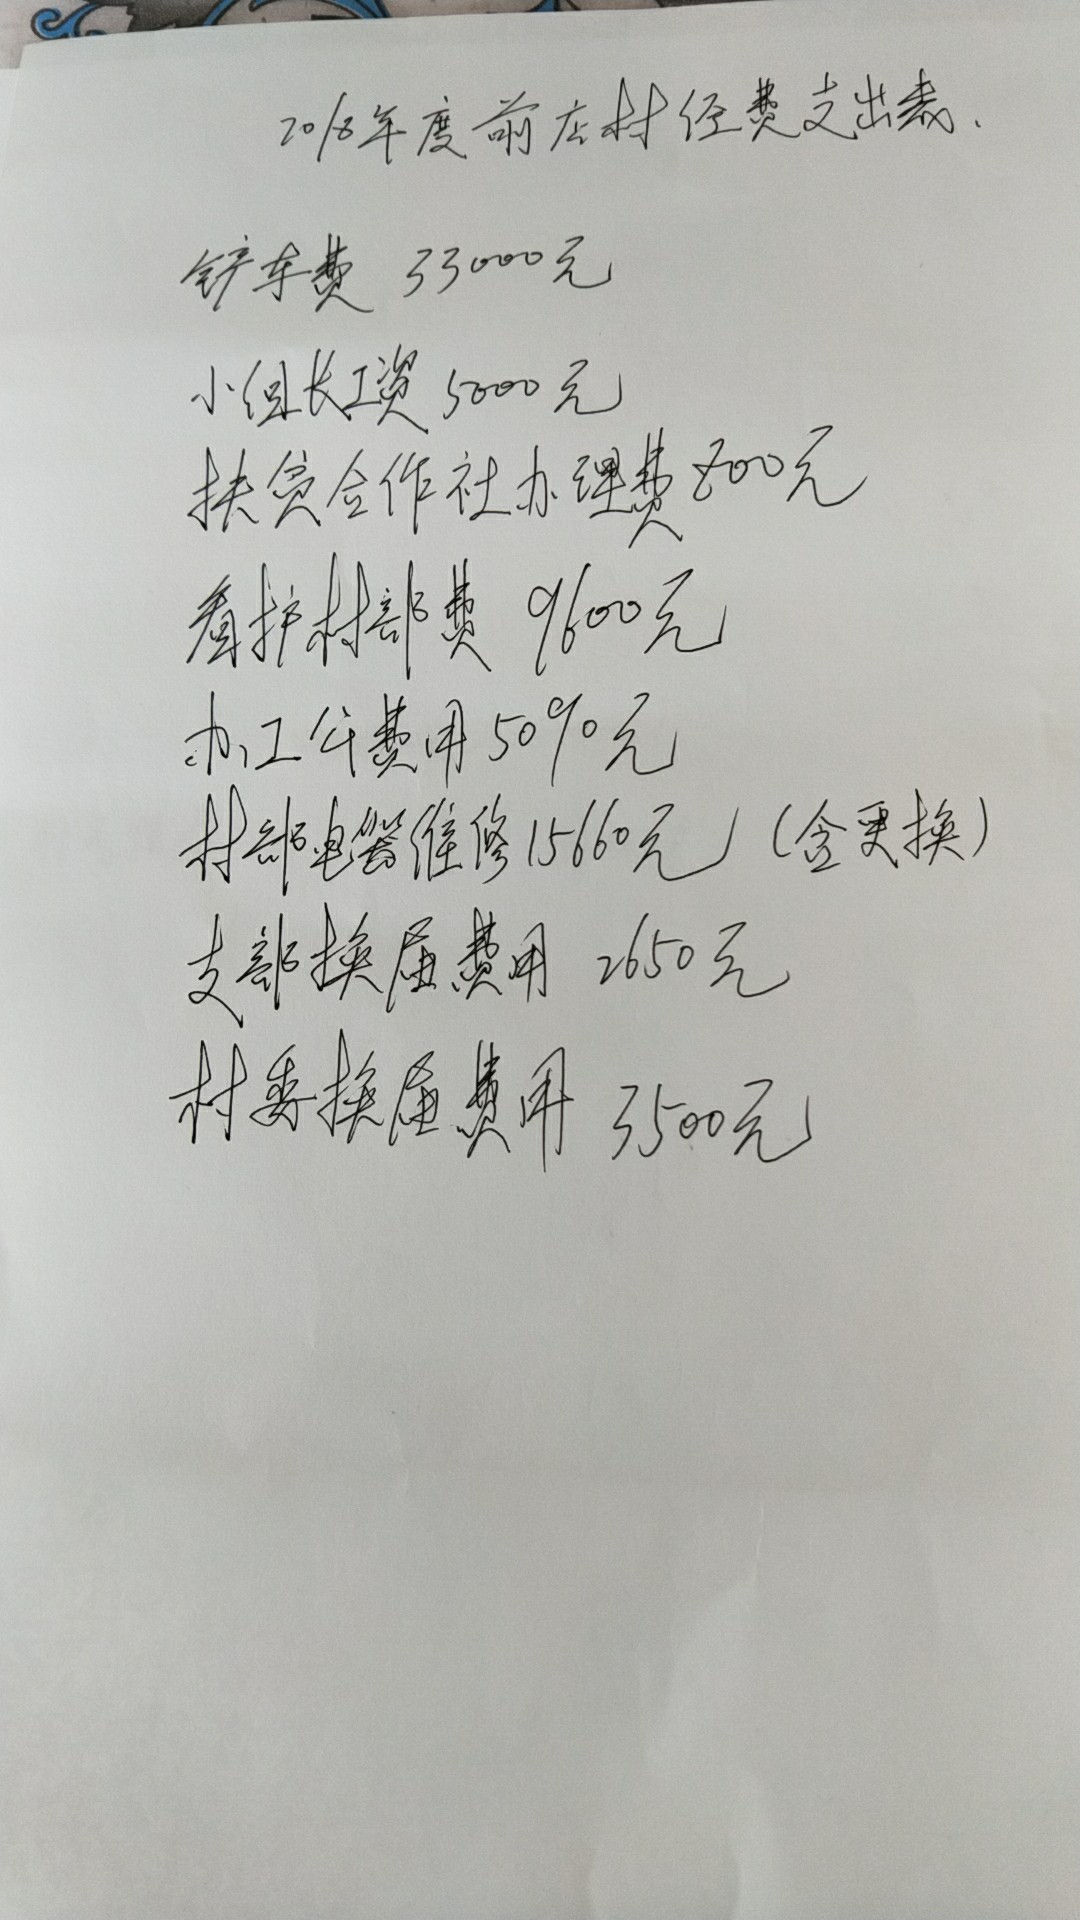 2018年度前庄村经费支出表.
铲车费 33000元
小组长工资5000元
扶贫合作社办理费800元
看护村部费 9600元
办工公费用5090元
村部电器维修15660元(含更换)
支部换届费用 2650元
村委换届费用 3500元